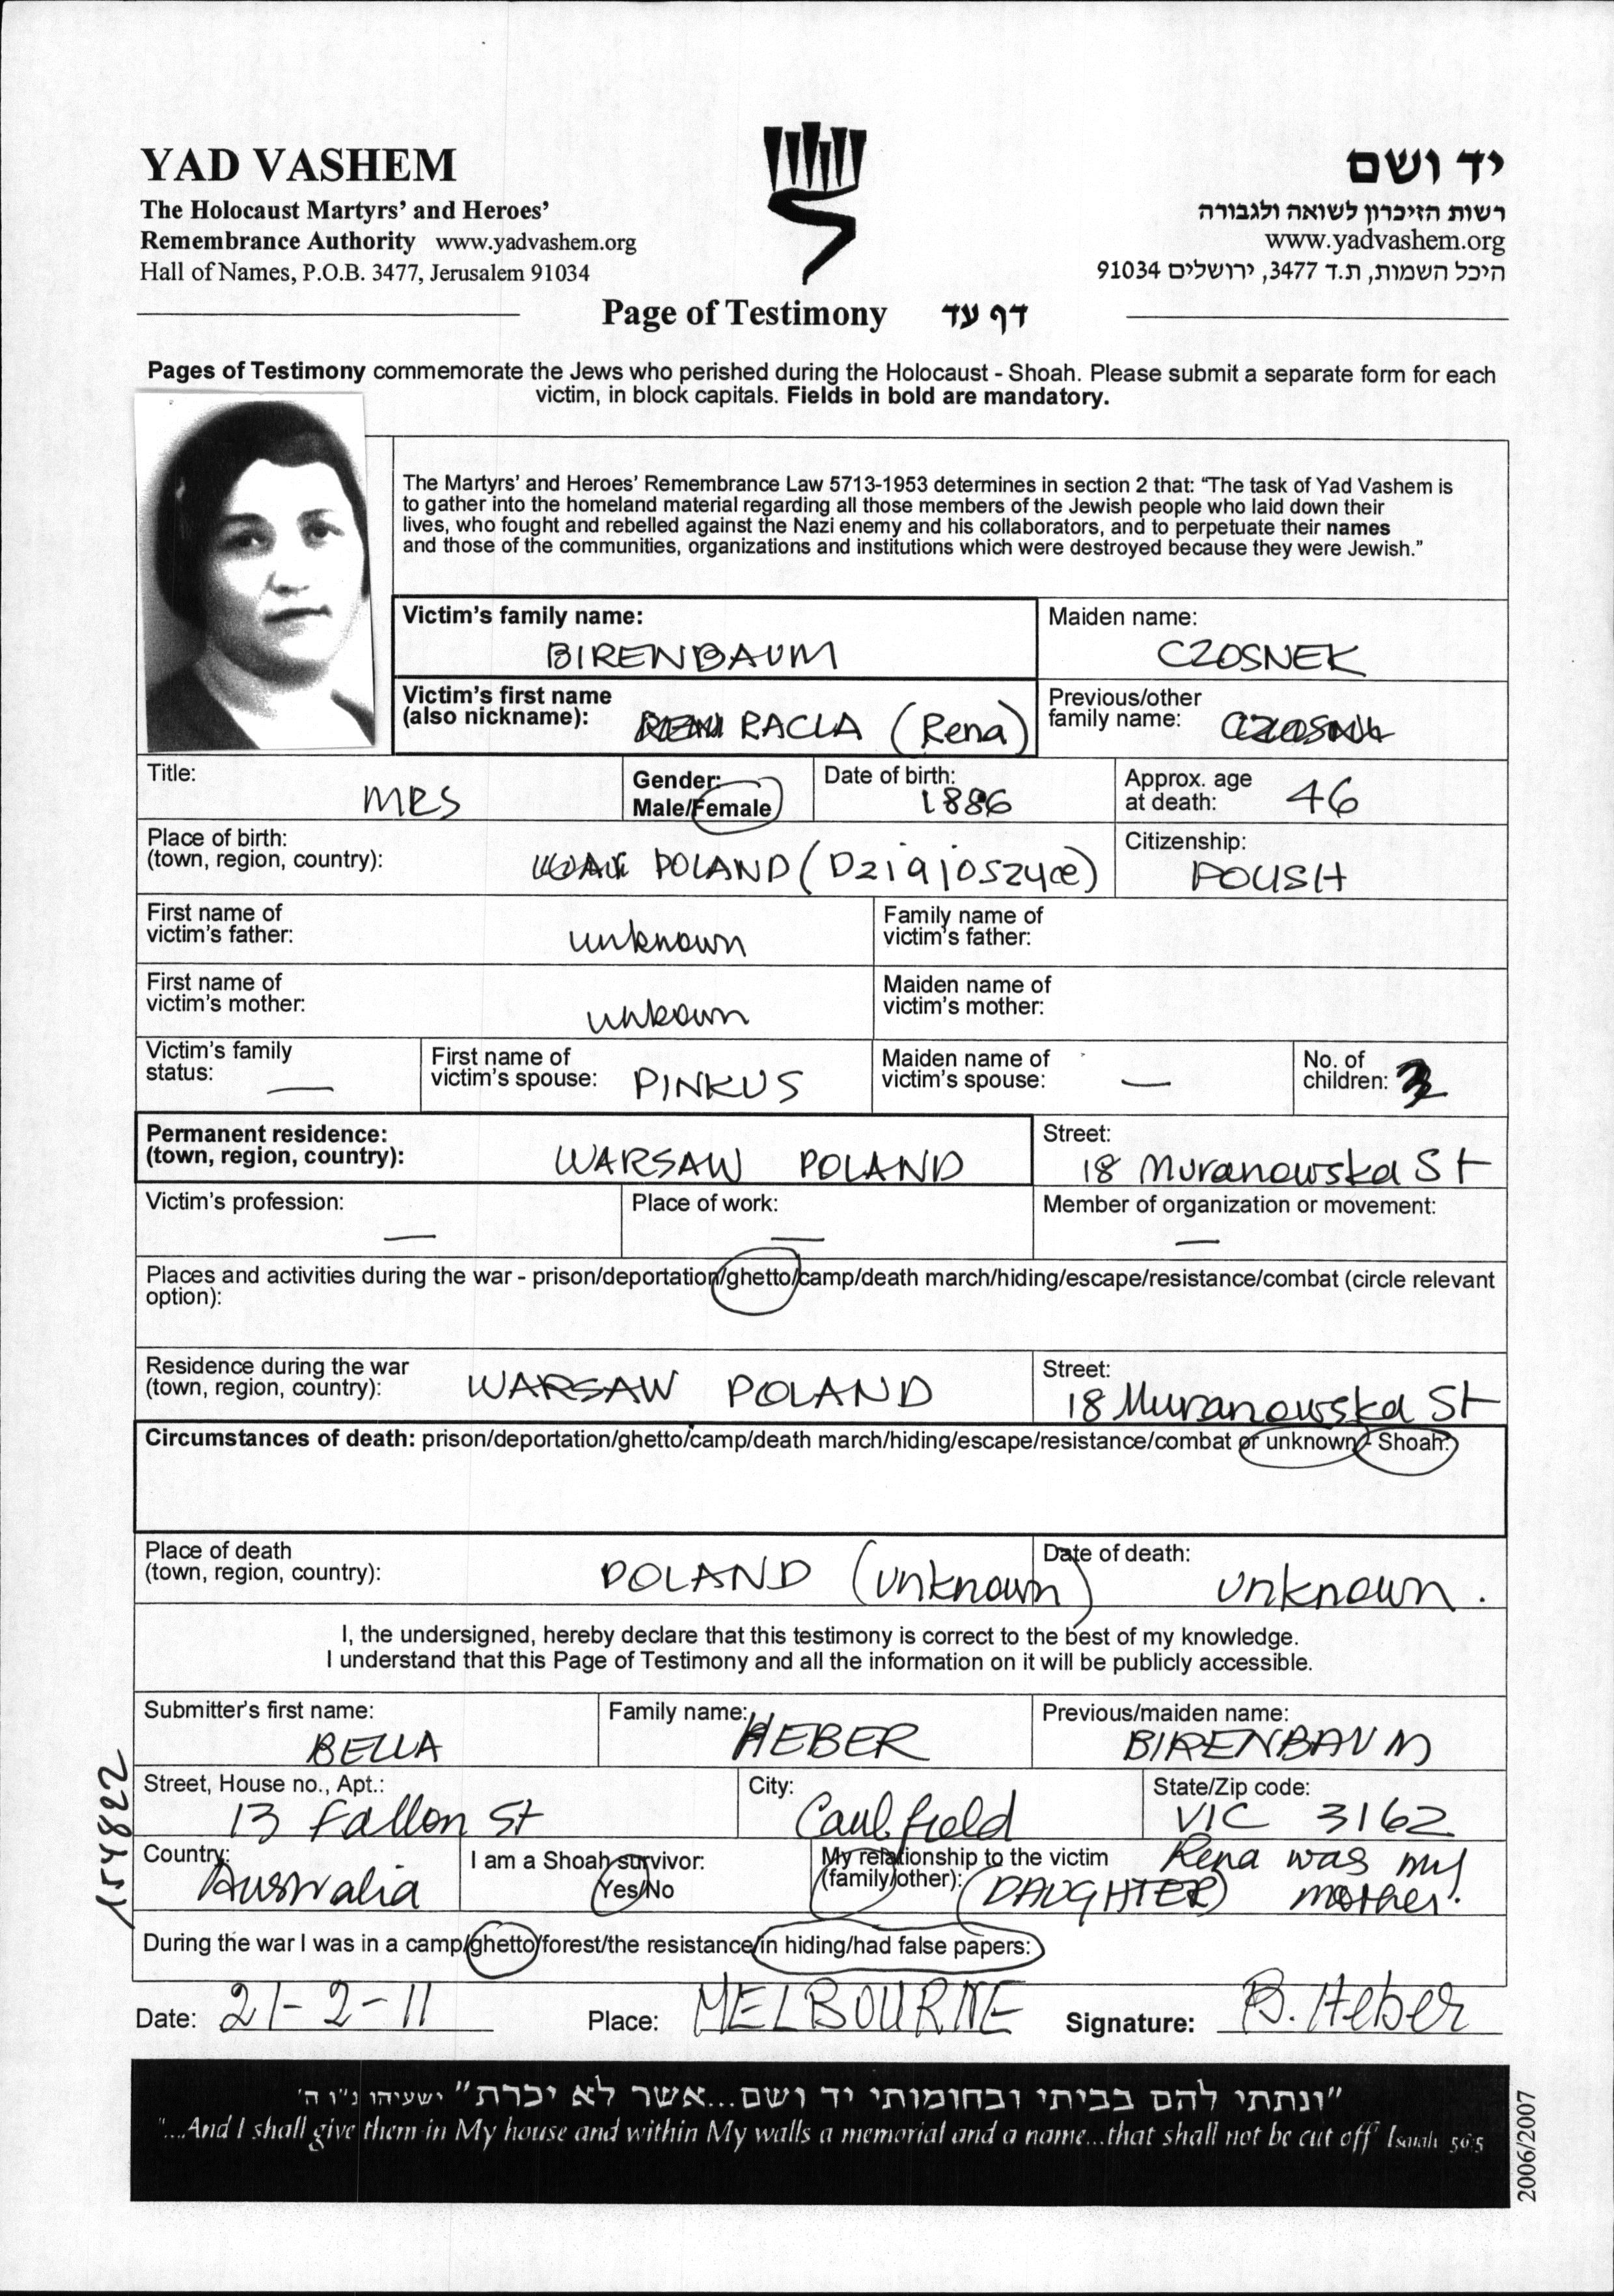 YAD VASHEM
The Holocaust Martyrs' and Heroes'
Remembrance Authority www.yadvashem.org
Hall of Names, P.O.B. 3477, Jerusalem 91034
יד ושם
רשות הזיכרון לשואה ולגבורה
www.yadvashem.org
היכל השמות, ת.ד 3477, ירושלים 91034
Page of Testimony דף עד
Pages of Testimony commemorate the Jews who perished during the Holocaust - Shoah. Please submit a separate form for each
victim, in block capitals. Fields in bold are mandatory.
The Martyrs' and Heroes' Remembrance Law 5713-1953 determines in section 2 that: "The task of Yad Vashem is
to gather into the homeland material regarding all those members of the Jewish people who laid down their
lives, who fought and rebelled against the Nazi enemy and his collaborators, and to perpetuate their names
and those of the communities, organizations and institutions which were destroyed because they were Jewish."
Victim's family name:
BIRENBAUM
Maiden name:
CZOSNEK
Victim's first name
(also nickname): RACLA (Rena)
Previous/other
family name:
Title:
MRS
Gender:
Male/Female
Date of birth:
1886
Approx. age
at death: 46
Place of birth:
(town, region, country): POLAND (Dzialoszyce)
Citizenship:
POLISH
First name of
victim's father: unknown
Family name of
victim's father:
First name of
victim's mother: unkown
Maiden name of
victim's mother:
Victim's family
status: —
First name of
victim's spouse: PINKUS
Maiden name of
victim's spouse: —
No. of
children:
Permanent residence:
(town, region, country): WARSAW POLAND
Street:
18 Muranowska St
Victim's profession:
—
Place of work:
—
Member of organization or movement:
—
Places and activities during the war - prison/deportation/ghetto/camp/death march/hiding/escape/resistance/combat (circle relevant
option):
Residence during the war
(town, region, country): WARSAW POLAND
Street:
18 Muranowska St
Circumstances of death: prison/deportation/ghetto/camp/death march/hiding/escape/resistance/combat or unknown - Shoah:
Place of death
(town, region, country): POLAND (unknown)
Date of death:
unknown.
I, the undersigned, hereby declare that this testimony is correct to the best of my knowledge.
I understand that this Page of Testimony and all the information on it will be publicly accessible.
Submitter's first name:
BELLA
Family name:
HEBER
Previous/maiden name:
BIRENBAUM
Street, House no., Apt.:
13 Fallon St
City:
Caulfield
State/Zip code:
VIC 3162
Country:
Australia
I am a Shoah survivor:
Yes/No
My relationship to the victim
(family/other): (DAUGHTER)
Rena was my
mother.
During the war I was in a camp/ghetto/forest/the resistance/in hiding/had false papers:
Date: 21-2-11 Place: MELBOURNE Signature: B. Heber
154822
"ונתתי להם בביתי ובחומותי יד ושם...אשר לא יכרת" ישעיהו נ"ו ה'
"...And I shall give them in My house and within My walls a memorial and a name...that shall not be cut off" Isaiah 56:5
2006/2007